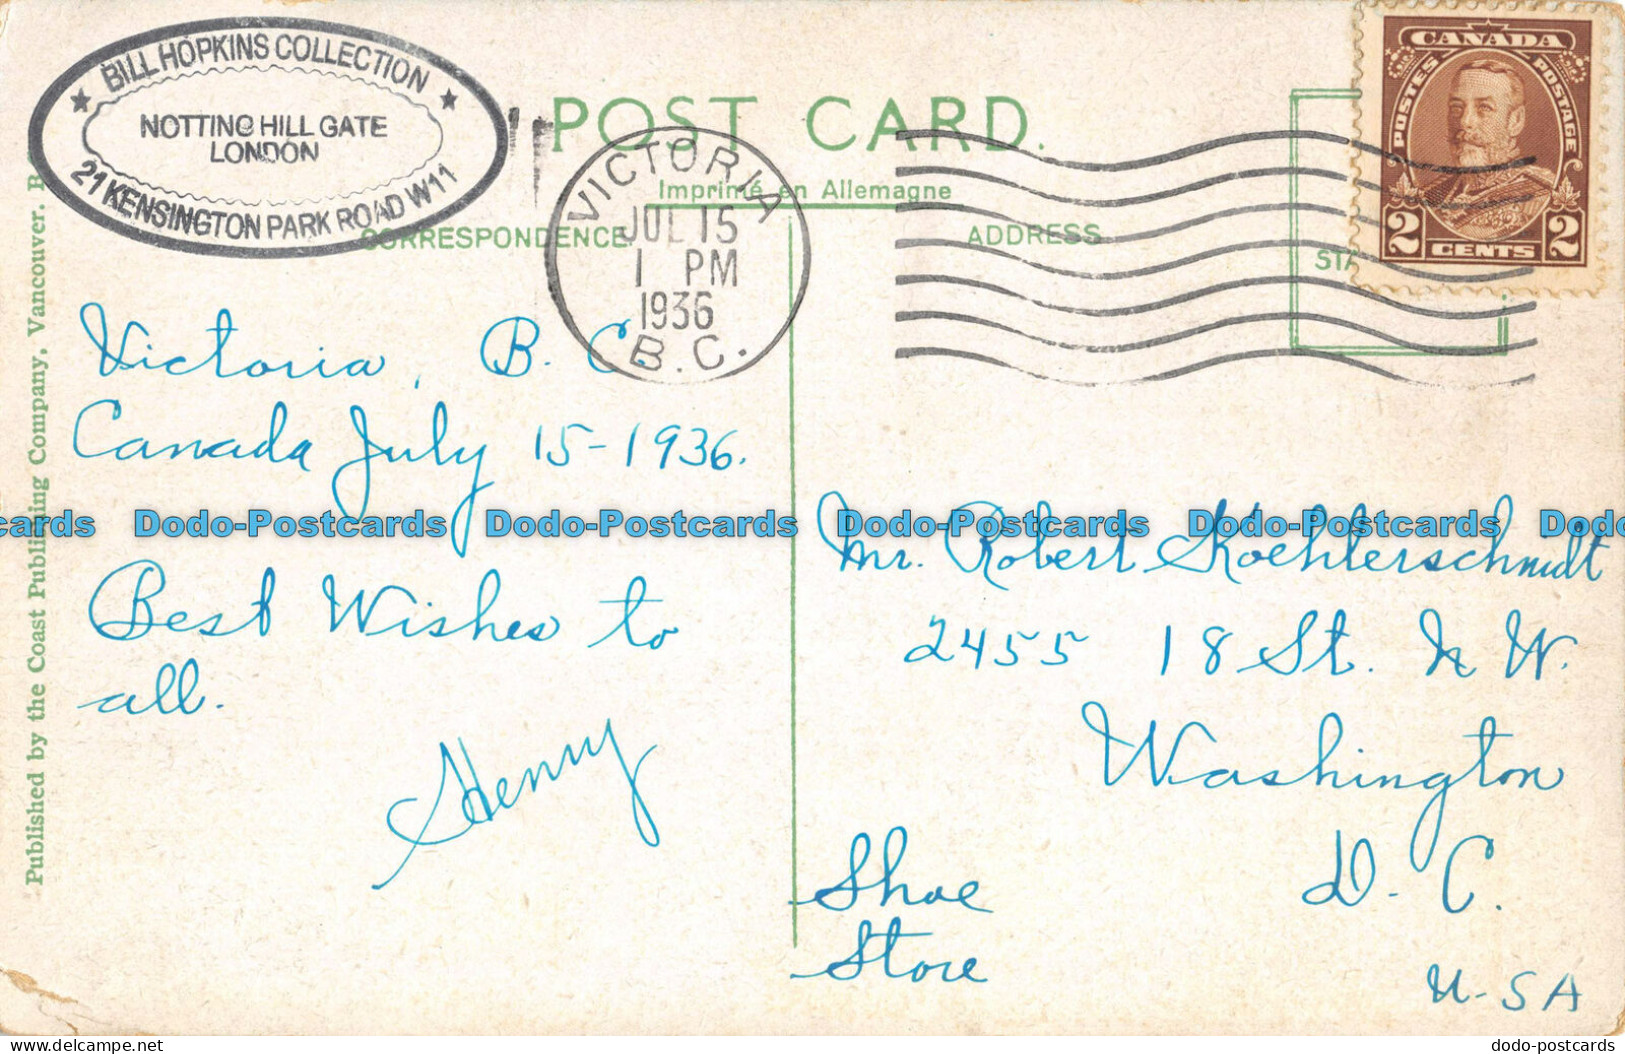 BILL HOPKINS COLLECTION
NOTTING HILL GATE
LONDON
21 KENSINGTON PARK ROAD W11
POST CARD.
Imprimé en Allemagne
CORRESPONDENCE
ADDRESS
VICTORIA
JUL 15
1 PM
1936
B.C.
CANADA
POSTES POSTAGE
2 CENTS 2
Published by the Coast Publishing Company, Vancouver.
Victoria, B. C.
Canada July 15-1936.
Best Wishes to
all.
Henry
Mr. Robert Koehlerschmidt
2455 18 St. N W.
Washington
D. C.
Shoe
Store
U-SA
Dodo-Postcards Dodo-Postcards Dodo-Postcards Dodo-Postcards
dodo-postcards.com